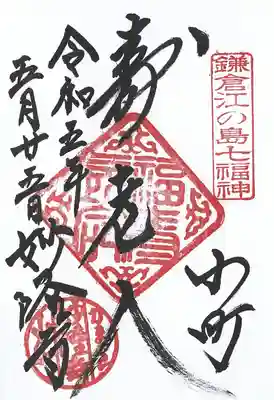 鎌倉江の島七福神
小町
寿老人
令和五年
五月廿五日 妙隆寺